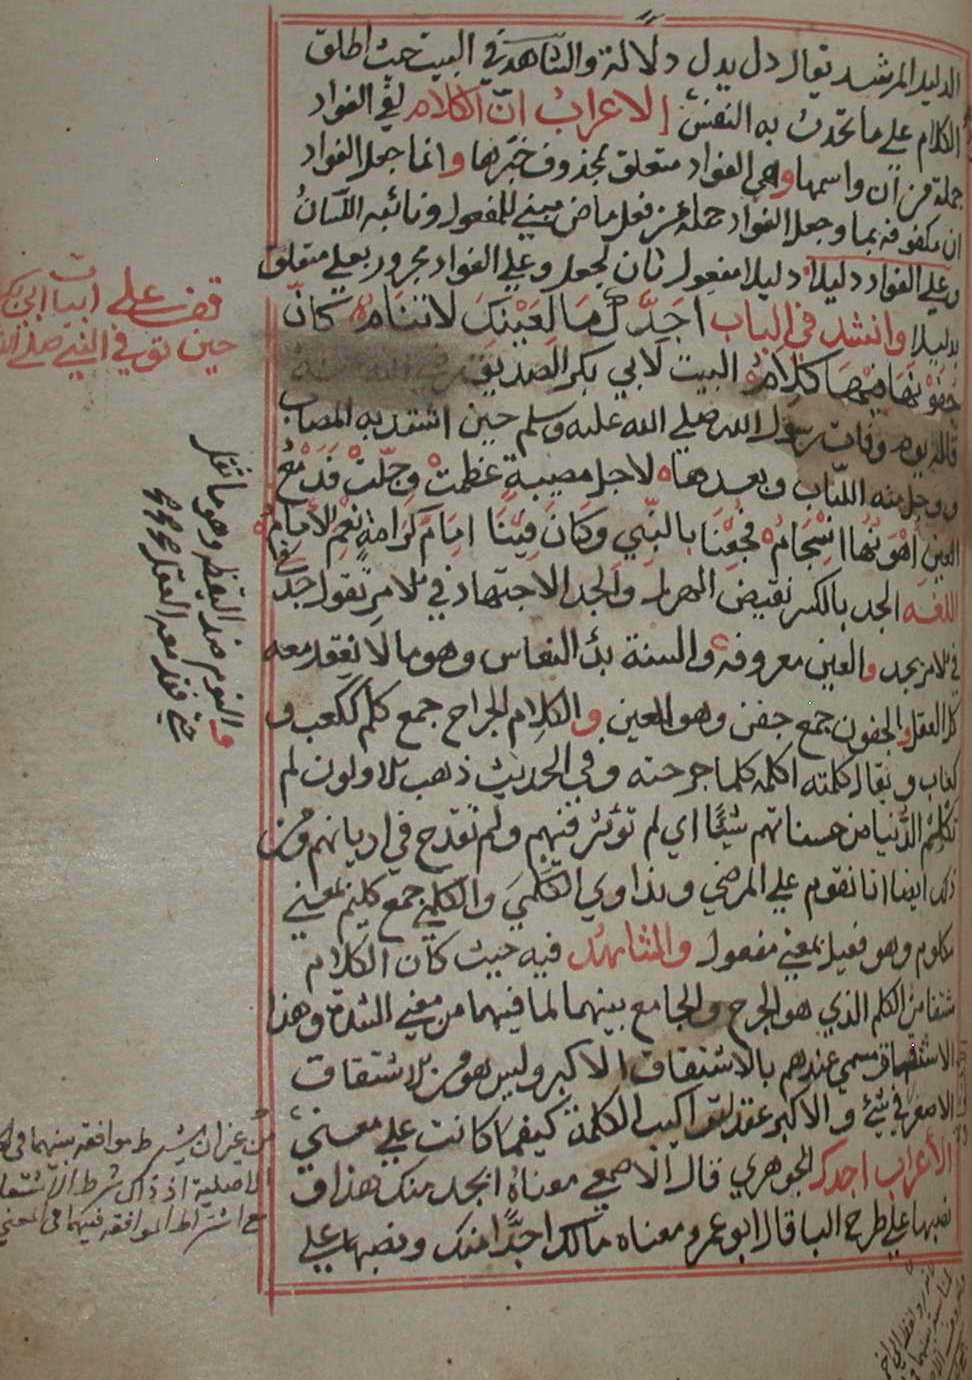 الدليل المرشد يقال دل يدل دلالة والشاهد في البيت حيث اطلق
الكلام علي ما تحدث به النفس الاعراب ان الكلام لفي الفواد
جملة من ان واسمها وفي الفواد متعلق بمحذوف خبرها وانما جعل الفواد
ان مكفوفه بما وجعل الفواد جملة من فعل ماض مبني للمفعول ونائبه اللسانُ
وعلي الفواد دليلا دليلا مفعول ثان لجعل وعلي الفواد مجرور بعلي متعلق
بدليلا وانشد في الباب اجدّك ما لعينك لاتنام كانّ
جفونها فيها كلام البيت لابي بكر الصديق رضي الله عنه
قاله يوم وفات رسول الله صلي الله عليه وسلم حين اشتد به المصاب
ووجل منه اللباب وبعدها لاجل مصيبة عظمت وجلّت فدمع
العين اهونها انسجام فجعنا بالنبي وكان فينا امام كرامة نعم الامام
اللغه الجد بالكسر نقيض الهزل والجد الاجتهاد في الامر تقول جدّ
في الامر يجد والعين معروفه والسنة بدأ النعاس وهو ما لا يفقد معه
كل العقل والجفون جمع جفن وهو للعين والكلام الجراح جمع كلم ككعب و
كعاب ويقال كلمته اكلمه كلما جرحته وفي الحديث ذهب الاولون لم
تكلمهم الدنيا من حسناتهم شيئا اي لم تؤثر فيهم ولم تقدح في اديانهم ومن
ذلك ايضا انا نقوم علي المرضي ونداوي الكلمي والكلمي جمع كليم بمعني
مكلوم وهو فعيل بمعني مفعول والشاهد فيه حيث كان الكلام
مشتقا من الكلم الذي هو الجرح والجامع بينهما لما فيهما من معني الشدة وهذا
الاشتقاق مسمي عندهم بالاشتقاق الاكبر وليس هو من الاشتقاق
الاصغر في شئ والاكبر عقد تراكيب الكلمة كيفما كانت علي معني
الأعراب اجدك الجوهري قال الاصمعي معناه ابجد منك هذا و
نصبها علي طرح البا قال ابو عمرو معناه مالك اجدا منك ونصبها علي
قف علي ابيات ابي بكر
حين توفي النبي صلي الله
فالنوم ضد اليقظه وهو ما تفكر
حتي يفقد معه العقل
من غير ان يشترط موافقه بينهما في
الاصلية اذ ذاك شرط الاشتقاق
مع اشتراط الموافقه فيهما في المعني